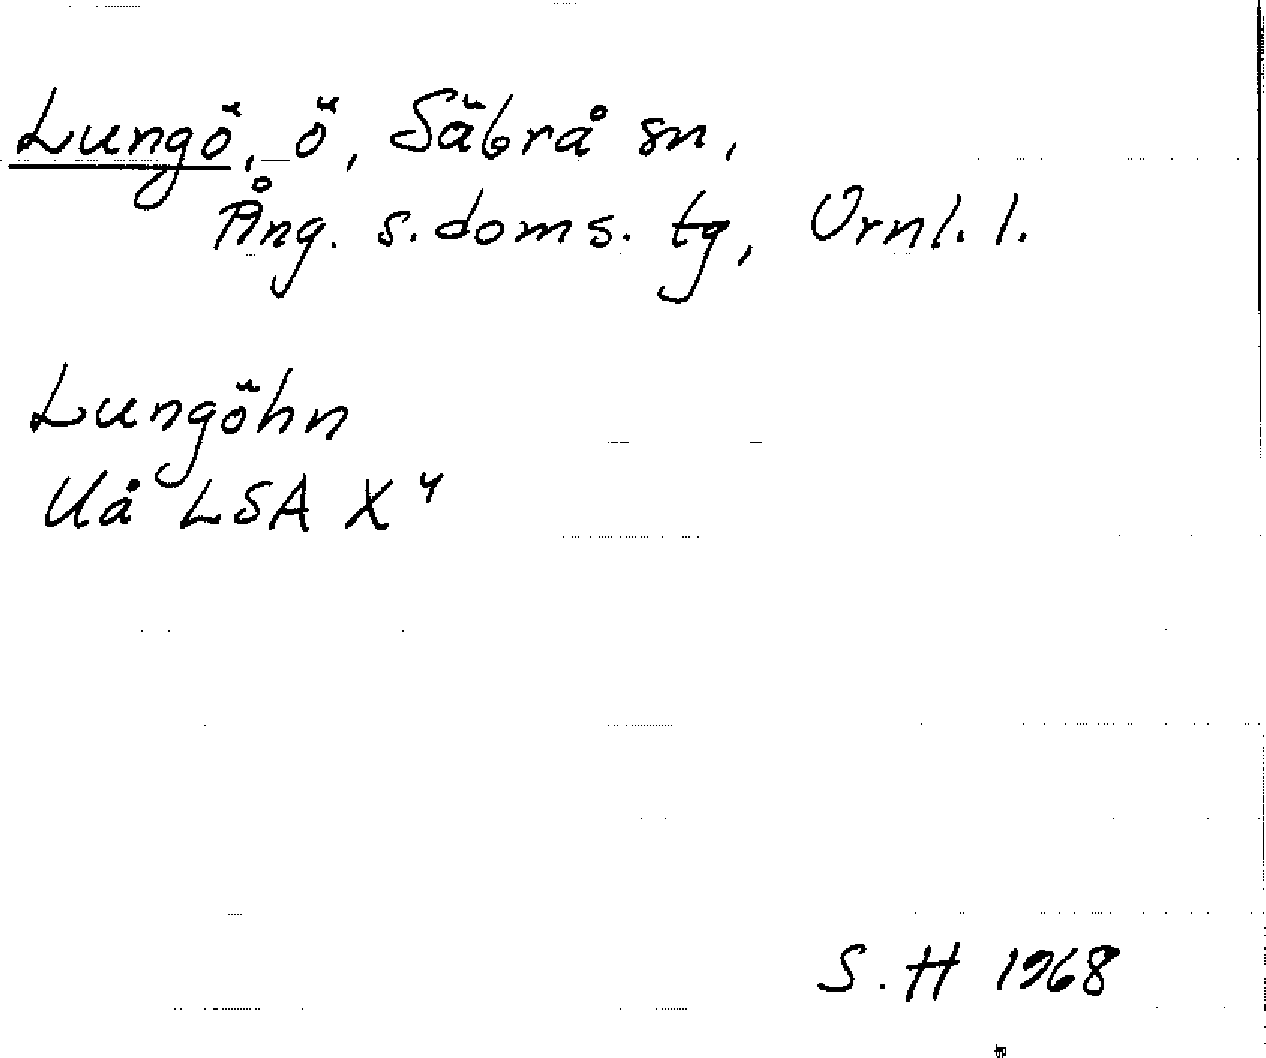 Lungö, ö, Säbrå sn,
Ång. s. doms. tg, Vrnl. l.
Lungöhn
Uå LSA X 4
S. H 1968